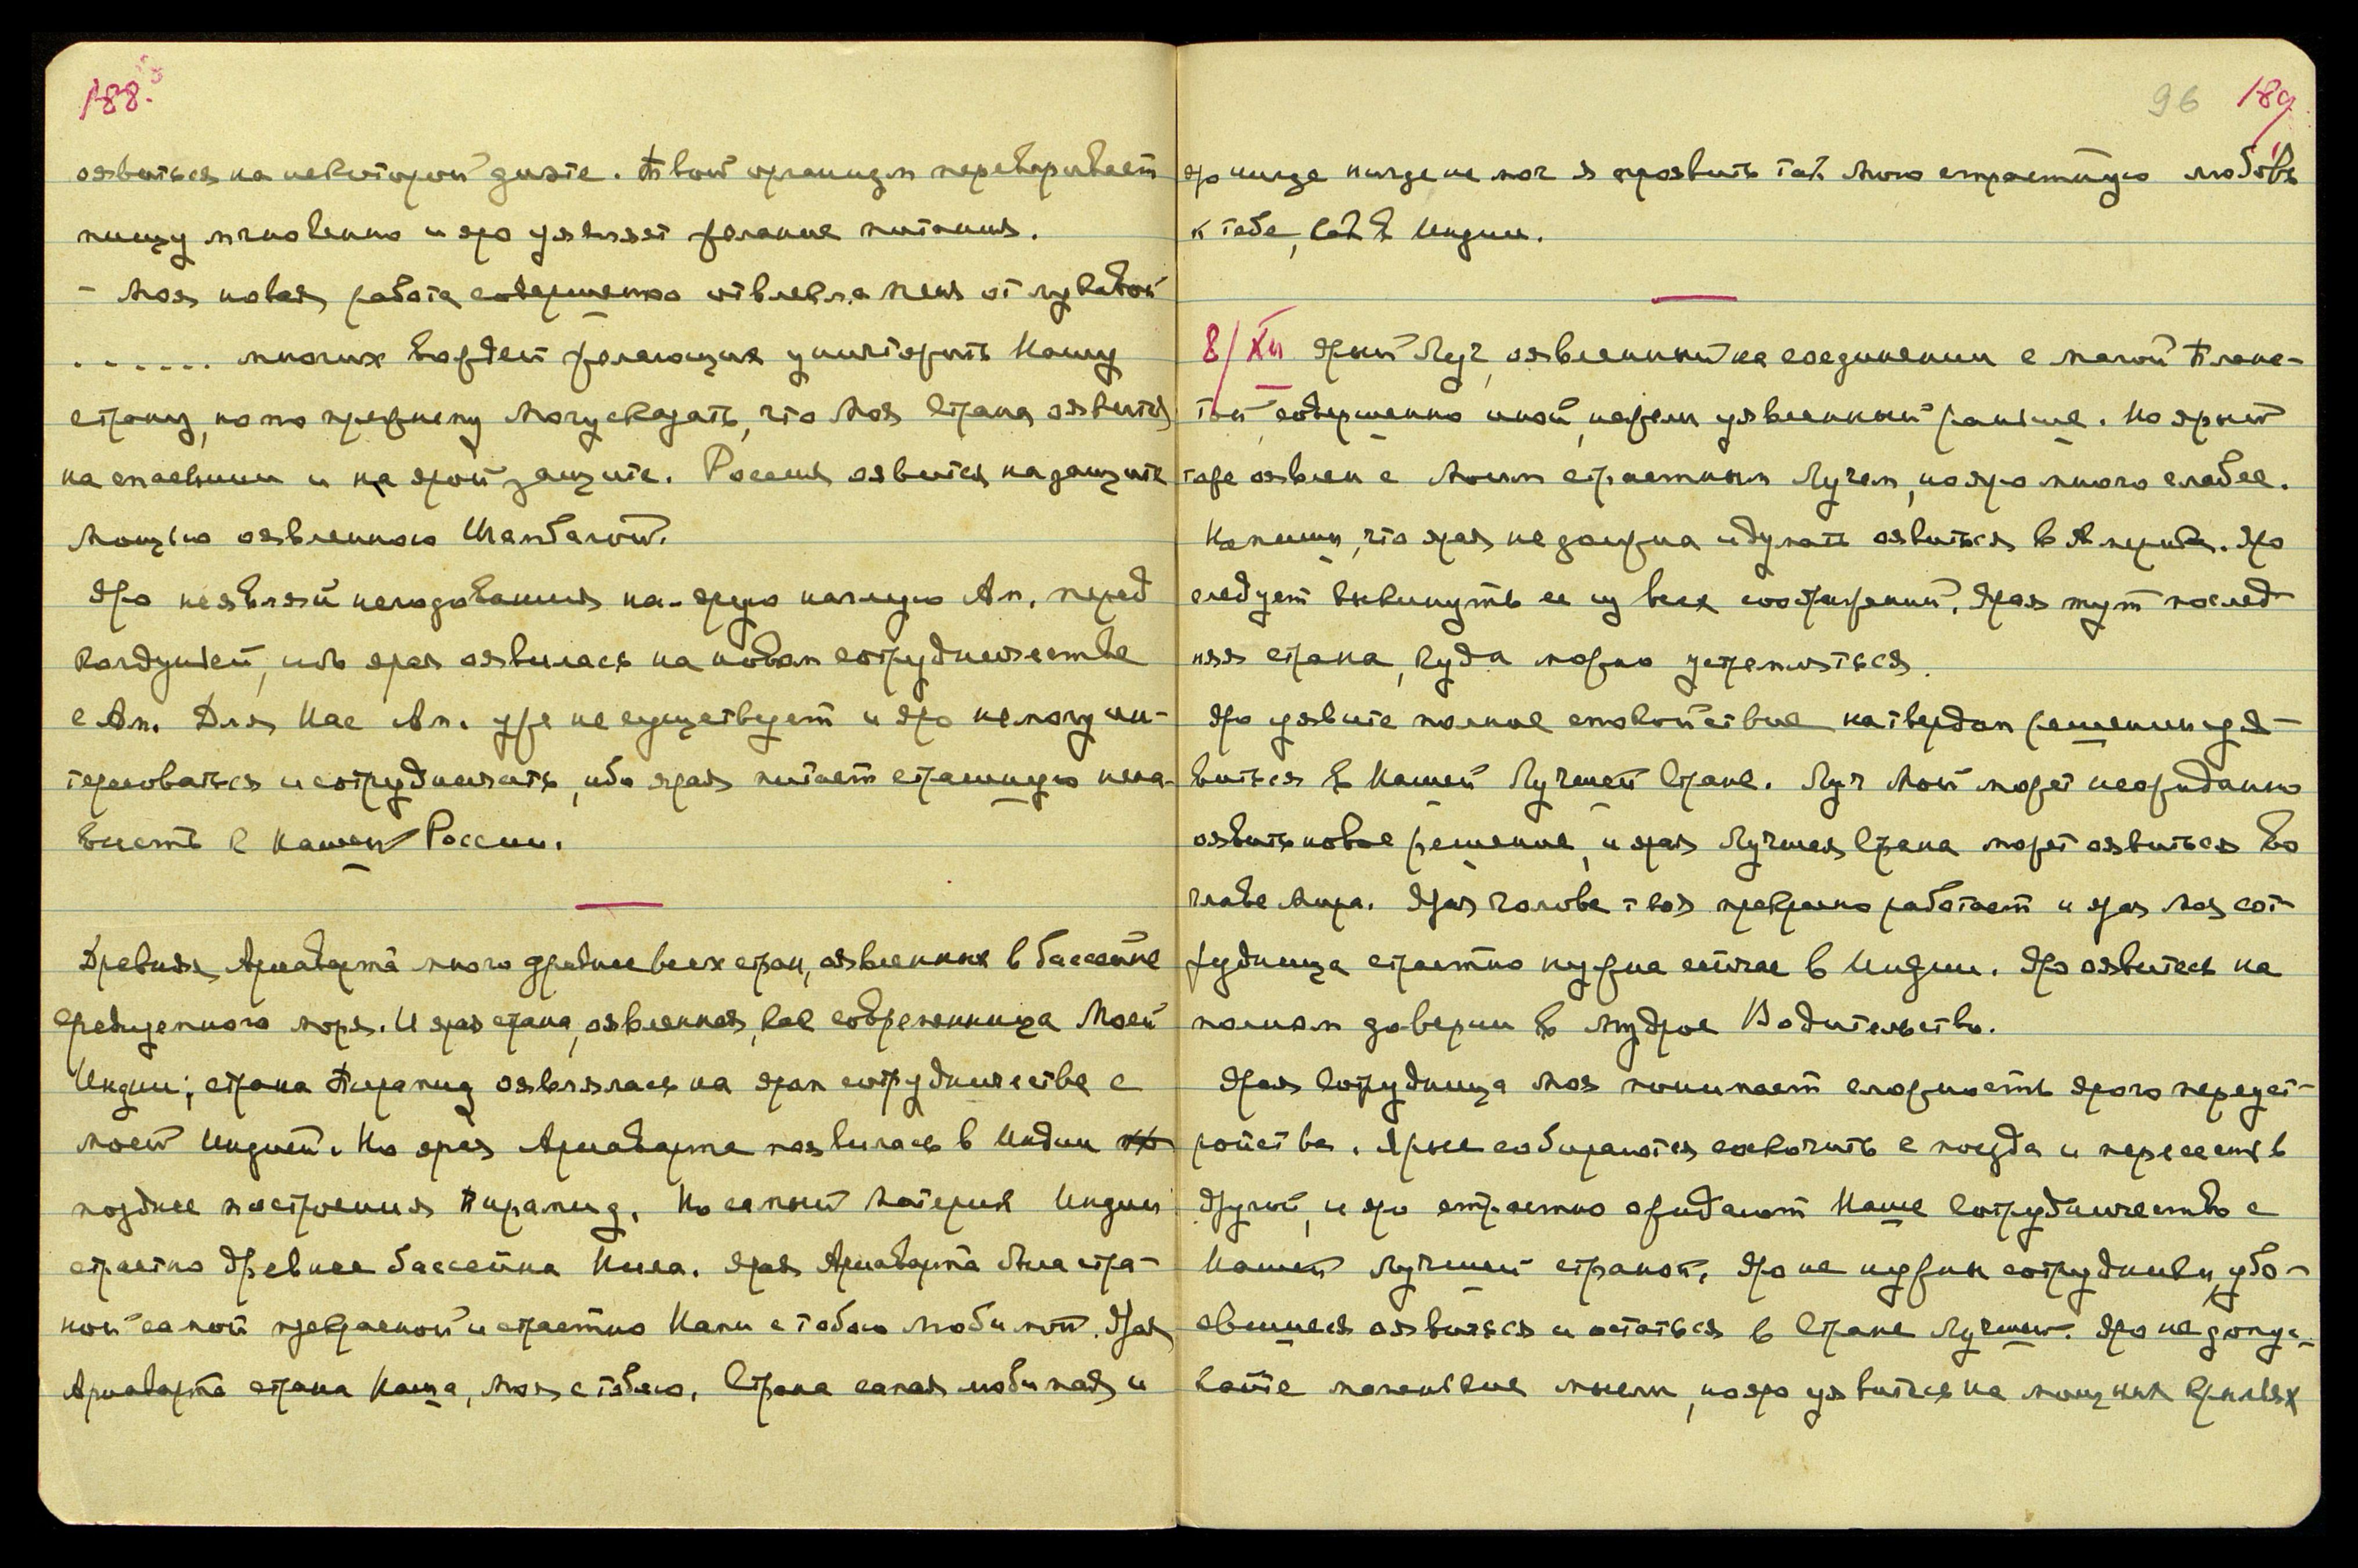 188.
оявиться на некоторой диэте. Твой организм переваривает
пищу мгновенно и яро уявляет желание питания.
– Моя новая работа совершенно отвлекла меня от луковой
. . . . . . многих вождей желающих уничтожить Нашу
страну, но по прежнему могу сказать, что Моя Страна оявится
на спасении и на ярой защите. Россия оявится на защите
мощью оявленною Шамбалой.
Яро не являй негодования на ярую наглую Ам. перед
колдуньей, ибо ярая оявилась на новом сотрудничестве
с Ам. Для Нас Ам. уже не существует и яро не могу ин-
тересоваться и сотрудничать, ибо ярая питает страшную нена-
висть к нашей России.
Древняя Ариаварта много древнее всех стран, оявленных в бассейне
Средиземного моря. И ярая страна, оявленная, как современница Моей
Индии; страна Пирамид оявлялась на яром сотрудничестве с
моей Индией. Но ярая Ариаварта появилась в Индии
позднее построения Пирамид. Но самый Материк Индии
страстно древнее бассейна Нила. Ярая Ариаварта была стра-
ной самой прекрасной и страстно Нами с тобою любимой. Ярая
Ариаварта страна Наша, моя с тобою. Страна самая любимая и
96 189
яро нигде нигде не мог я проявить так мою страстную любовь
к тебе, как в Индии.
8/XII Ярый Луч, оявленный на соединении с малой Плане-
той, совершенно иной, нежели уявленный раньше. Но ярый
тоже оявлен с Моим страстным Лучем, но яро много слабее.
Напиши, что ярая не должна и думать оявиться в Америке. Яро
следует выкинуть ее из всех соображений. Ярая тут послед-
няя страна, куда можно устремиться.
Яро уявите полное спокойствие на твердом решении уя-
виться в Нашей Лучшей Стране. Луч Мой может неожиданно
оявить новое решение, и ярая Лучшая Страна может оявиться во
главе Мира. Ярая голова твоя прекрасно работает и ярая Моя сот-
рудница страстно нужна сейчас в Индии. Яро оявитесь на
полном доверии в Мудрое Водительство.
Ярая Сотрудница Моя понимает сложность ярого переуст-
ройства. Ярые собираются соскочить с поезда и пересесть в
другой, и яро страстно ожидают Наше Сотрудничество с
Нашей Лучшей страной. Яро не нужны сотрудники, убо-
явшиеся оявиться и остаться в Стране Лучшей. Яро не допус-
кайте малейшие мысли, но яро уявитесь на мощных крыльях